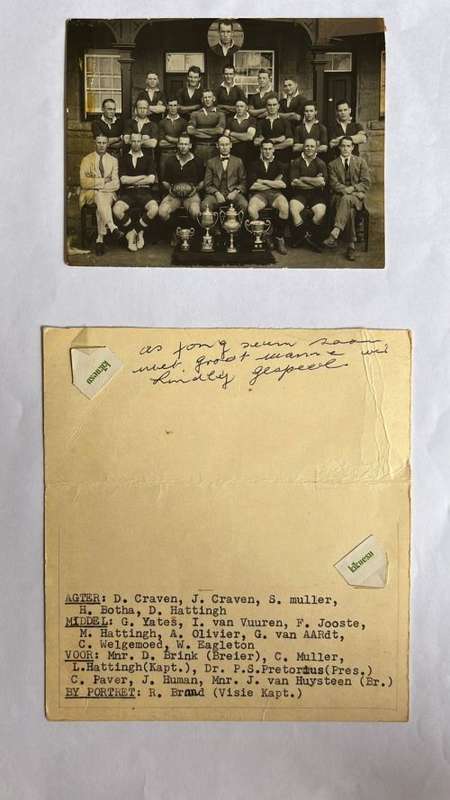 as jong seun saam
met groot manne wat
Rugby gespeel
AGTER: D. Craven, J. Craven, S. muller,
H. Botha, D. Hattingh
MIDDEL: G. Yates, I. van Vuuren, F. Jooste,
M. Hattingh, A. Olivier, G. van AARdt,
C. Welgemoed, W. Eagleton
VOOR: Mnr. D. Brink (Breier), C. Muller,
L.Hattingh(Kapt.), Dr. P.S.Pretorius(Pres.)
C. Paver, J. Human, Mnr. J. van Huysteen (Br.)
BY PORTRET: R. Brand (Visie Kapt.)